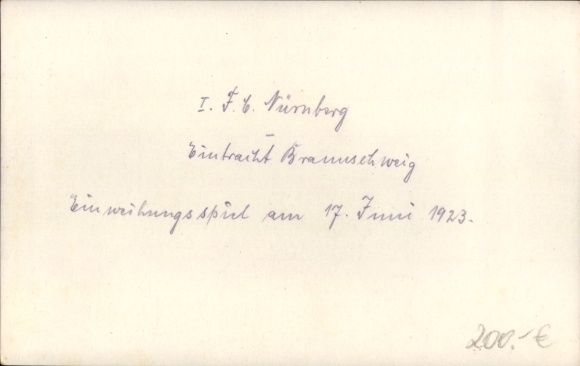 I. F. C. Nürnberg
–
Eintracht Braunschweig
Einweihungsspiel am 17. Juni 1923.
200.- €